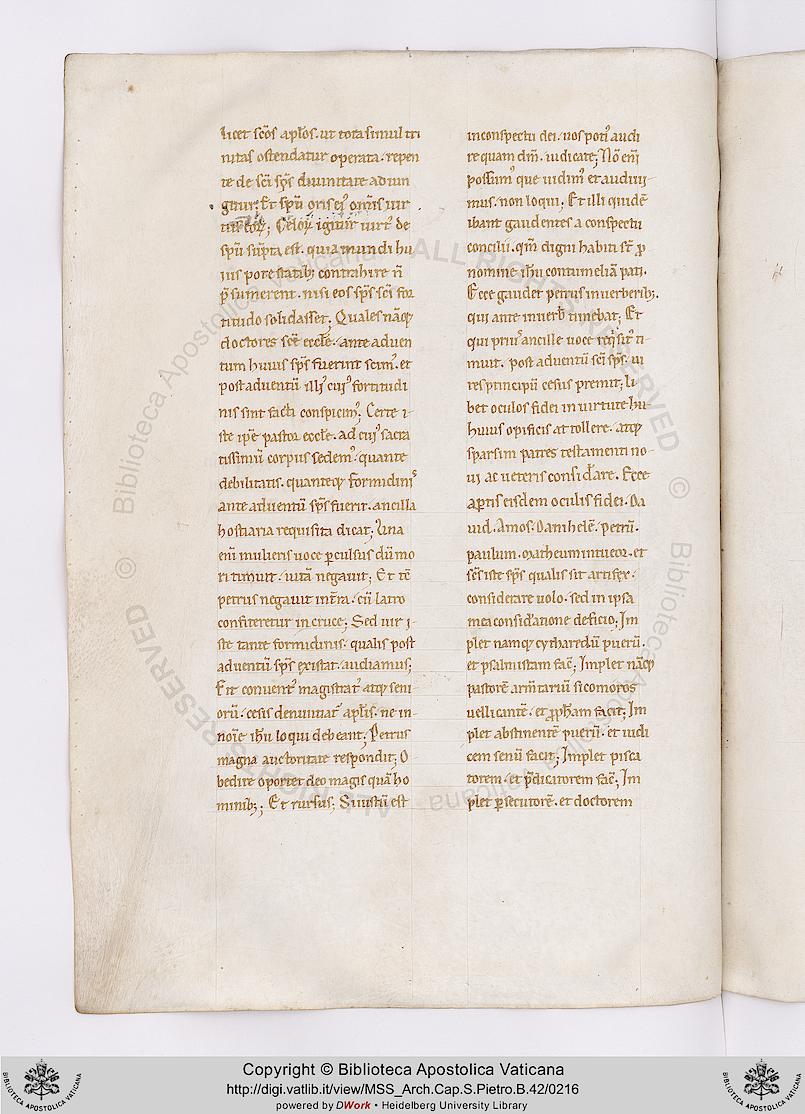 licet scōs aplōs. ut tota simul tri
nitas ostendatur operata. repen
te de scī sp̄s diuinitate adiun
gitur: Et spū oris ei' om̄is uir
tus eoꝝ; Celoꝝ igitur uirt' de
spū sūpta est. quia mundi hu
ius potestatib; contraire n̄
p̄sumerent. nisi eos sp̄s scī for
titudo solidasset; Quales nāq;
doctores scē eccłe. ante aduen
tum huius sp̄s fuerint scim'. et
post aduentū illi' cui' fortitudi
nis sint facti conspicim'; Certe i-
ste ip̄e pastor eccłe. ad cui' sacra
tissimū corpus sedem'. quante
debilitatis. quanteq; formidinis
ante aduentū sp̄s fuerit. ancilla
hostiaria requisita dicat; Una
em̄ mulieris uoce ꝑculsus dū mo
ri timuit. uitā negauit; Et tc̄
petrus negauit in tr̄a. cū latro
confiteretur in cruce; Sed uir i-
ste tante formidinis. qualis post
aduentū sp̄s existat. audiamus;
Fit conuent' magistrat' atq; seni
orū. cesis denuntiat' aplīs. ne in
noīe ihū loqui debeant; Petrus
magna auctoritate respondit; O
bedire oportet deo magis quā ho
minib;; Et rursus; Si iustū est
in conspectu dei. uos poti' audi
re quam dm̄. iudicate; Nō em̄
possum' que uidim' et audiui
mus. non loqui; Et illi quidē
ibant gaudentes a conspectu
concilii. qm̄ digni habiti st̄ ꝓ
nomine ihū contumeliā pati.
Ecce gaudet petrus in uerberib;.
qui ante in uerb̄ timebat; Et
qui pri' ancille uoce reqisit' ti-
muit. post aduentū scī sp̄s. ui
res principū cesus premit; Li
bet oculos fidei in uirtute hu-
huius opificis attollere. atq;
sparsim patres testamenti no-
ui ac ueteris considare. Ecce
aꝑtis eisdem oculis fidei. Da
uid. Amos. Danihelē. petrū.
paulum. Matheum intueor. et
scs̄ iste sp̄s qualis sit artifex.
considerare uolo. sed in ipsa
mea consid'atione deficio; Im
plet namq; cytharedū puerū.
et psalmistam fac̄; Implet nāq;
pastorē armtariū sicomoros
uellicantē. et ꝓph̄am facit; Im
plet abstinentē puerū. et iudi
cem senū facit; Implet pisca
torem. et p̄dicatorem fac̄; Im
plet ꝑsecutorē. et doctorem
Copyright © Biblioteca Apostolica Vaticana
http://digi.vatlib.it/view/MSS_Arch.Cap.S.Pietro.B.42/0216
powered by DWork • Heidelberg University Library
BIBLIOTECA APOSTOLICA VATICANA
BIBLIOTECA APOSTOLICA VATICANA
Biblioteca Apostolica Vaticana ALL RIGHTS RESERVED ©
Biblioteca Apostolica Vaticana ALL RIGHTS RESERVED ©